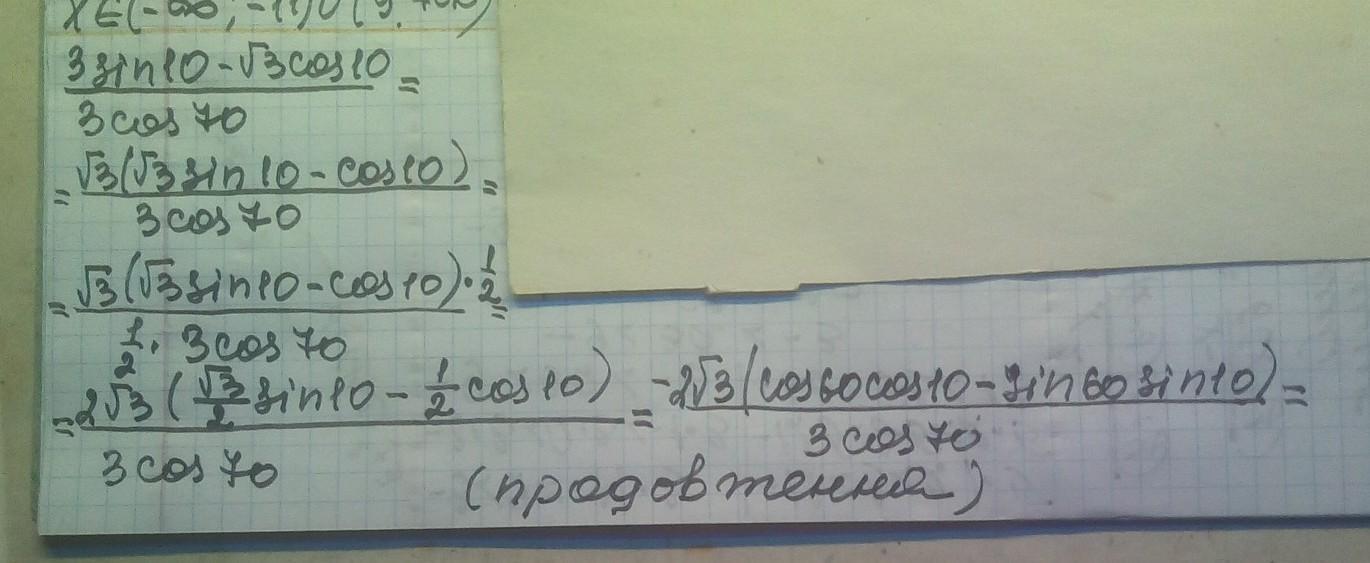 x∈(-∞; -11)∪(9; +∞)
(3sin10-√3cos10)/(3cos70) =
= (√3(√3sin10-cos10))/(3cos70) =
= (√3(√3sin10-cos10)·1/2)/(1/2·3cos70) =
= (2√3(√3/2 sin10-1/2 cos10))/(3cos70) = (-2√3(cos60cos10-sin60sin10))/(3cos70) =
(продовження)